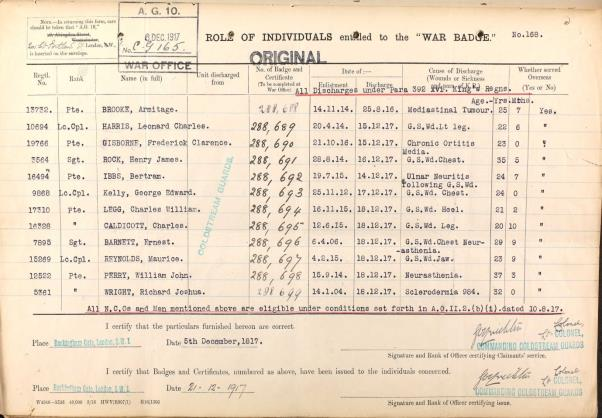 NOTE.—In returning this form, care
should be taken that "A.G. 10."
London, S.W.,
is inserted on the envelope.
A. G. 10.
6 DEC. 1917
No. C-9165.
WAR OFFICE
ROLL OF INDIVIDUALS entitled to the "WAR BADGE."
No. 168.
ORIGINAL
Regtl. No. Rank Name (in full) Unit discharged from No. of Badge and Certificate (To be completed at War Office) Date of :— Enlistment Discharge Cause of Discharge (Wounds or Sickness Whether served Overseas (Yes or No)
All Discharges under Para 392 XVI. King's Regns.
Age.-Yrs.Mths.
13732. Pte. BROOKE, Armitage. 288,688 14.11.14. 25.8.16. Mediastinal Tumour. 25 7 Yes.
10694 Lc.Cpl. HARRIS, Leonard Charles. 288,689 20.4.14. 15.12.17. G.S.Wd.Lt leg. 22 6 "
19766 Pte. GISBORNE, Frederick Clarence. 288,690 21.10.16 15.12.17. Chronic Ortitis Media. 23 0 "
3564 Sgt. ROCK, Henry James. 288,691 28.8.14. 16.12.17. G.S.Wd.Chest. 35 5 "
16494 Pte. IBBS, Bertram. 288,692 19.7.15. 14.12.17. Ulnar Neuritis following G.S.Wd. 24 7 "
9868 Lc.Cpl. Kelly, George Edward. 288,693 25.11.12. 17.12.17. G.S.Wd. Chest. 24 0 "
17310 Pte. LEGG, Charles William. 288,694 16.11.15 18.12.17. G.S.Wd. Heel. 21 2 "
16328 " CALDICOTT, Charles. 288,695 12.6.15. 18.12.17. G.S.Wd. Leg. 20 10 "
7895 Sgt. BARNETT, Ernest. 288,696 6.4.06. 18.12.17. G.S.Wd.Chest Neurasthenia. 29 9 "
15269 Lc.Cpl. REYNOLDS, Maurice. 288,697 4.2.15. 18.12.17. G.S.Wd.Jaw. 23 9 "
12522 Pte. PERRY, William John. 288,698 15.9.14. 18.12.17. Neurasthenia. 37 3 "
5361 " WRIGHT, Richard Joshua. 288,699 14.1.04. 18.12.17. Sclerodermia 984. 32 0 "
COLDSTREAM GUARDS.
All N.C.Os and Men mentioned above are eligible under conditions set forth in A.O.II.2.(b)(1).dated 10.8.17.
I certify that the particulars furnished hereon are correct.
Place Buckingham Gate, London, S.W.1. Date 5th December, 1917.
Colonel
Lt COLONEL,
COMMANDING COLDSTREAM GUARDS
Signature and Rank of Officer certifying Claimants' service.
I certify that Badges and Certificates, numbered as above, have been issued to the individuals concerned.
Place Buckingham Gate, London, S.W.1. Date 21-12-1917
Colonel
Lt COLONEL,
COMMANDING COLDSTREAM GUARDS
Signature and Rank of Officer certifying issue.